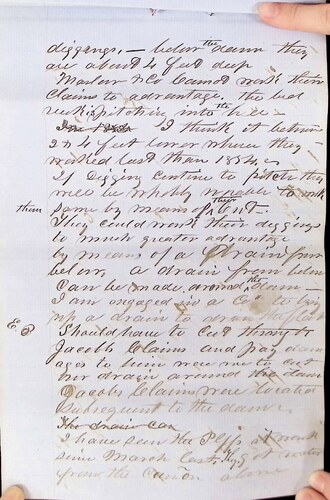 diggings, — below the dam they
are about 4 feet deep
Marlow & Co cannot work their
claims to advantage, the bed
rock pitching into the
I think it between
2 & 4 feet lower where they
worked last than 1854,
If Digging continue to pitch they
will be wholly unable to work
same by means of their Cut.
them They could work their diggings
to much greater advantage
by means of a Drain from
below, a drain from below
can be made around the dam —
I am engaged in a Co to bring
up a drain to drain the flat
Should have to Cut through
Jacobs Claims and pay dam
ages to him were we to cut
our drain around the dam
Jacobs Claims were located
Subsequent to the dam.
The drain can
I have seen the Plffs at work
since March last, They got water
from the Cañon alone